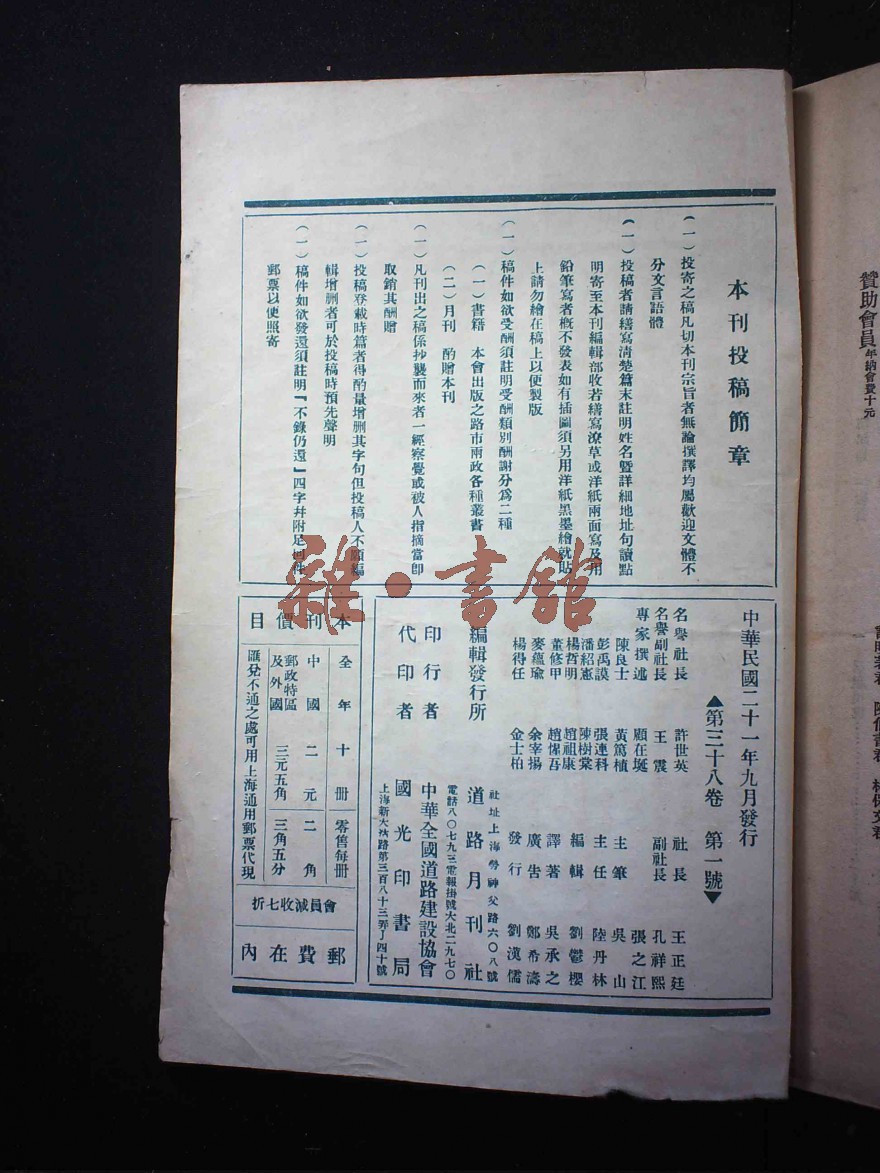 本刊投稿簡章
(一)投寄之稿凡切本刊宗旨者無論撰譯均屬歡迎文體不
分文言語體
(一)投稿者請繕寫清楚篇末註明姓名暨詳細地址句讀點
明寄至本刊編輯部收著繕寫潦草或洋紙兩面寫及用
鉛筆寫者概不發表如有插圖須另用洋紙黑墨繪就貼
上請勿繪在稿上以便製版
(一)稿件如欲受酬須註明受酬類別酬謝分爲二種
(一)書籍 本會出版之路市兩政各種叢書
(二)月刊 酌贈本刊
(一)凡刊出之稿係抄襲而來者一經察覺或被人指摘當卽
取銷其酬贈
(一)投稿登載時篇者得酌量增删其字句但投稿人不願編
輯增删者可於投稿時預先聲明
(一)稿件如欲發還須註明『不錄仍還』四字幷附足回件
郵票以便照寄
中華民國二十一年九月發行
▲第三十八卷 第一號▼
名譽社長 許世英 社長 王正廷
名譽副社長 王震 副社長 孔祥熙
張之江
專家撰述 顧在埏 主筆 吳山
陳良士 黃篤植 主任 陸丹林
彭禹謨 張連科 編輯 劉鬱櫻
潘紹憲 陳樹棠 譯著 吳承之
楊哲明 趙祖康 廣告 鄭希濤
董修甲 發行 劉漢儒
麥蘊瑜 余宰揚
楊得任 金士柏
編輯發行所 道路月刊社
社址上海勞神父路六〇八號
電話八〇七九三電報掛號大北二九七〇
印行者 中華全國道路建設協會
代印者 國光印書局
上海新大沽路第三百八十三弄丁四十號
本刊價目
全年十册 零售每册
中國 二元 二角
郵政特區及外國 三元五角 三角五分
匯兌不通之處可用上海通用郵票代現
會員減收七折
郵費在內
雜·書館
贊助會員年納會費十元